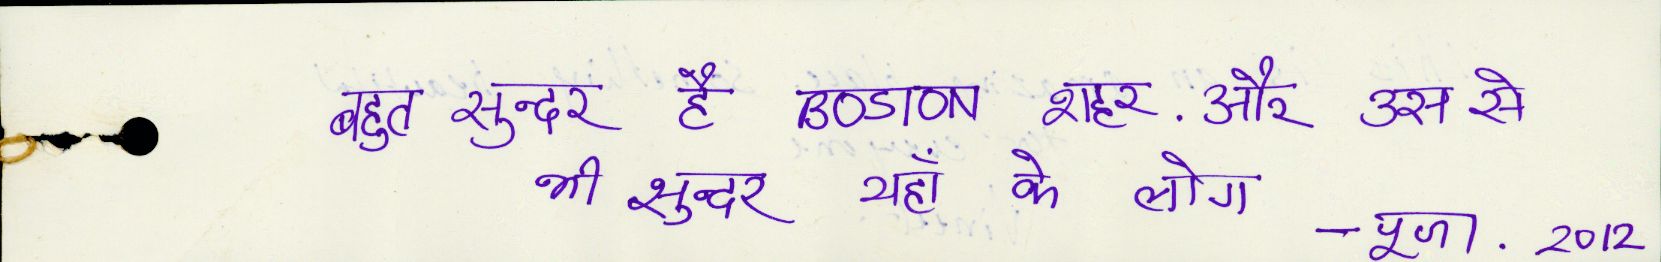 बहुत सुन्दर है BOSTON शहर. और उस से
भी सुन्दर यहाँ के लोग
– पूजा. 2012